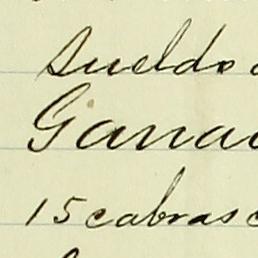 Sueldo
Gana
15 cabras